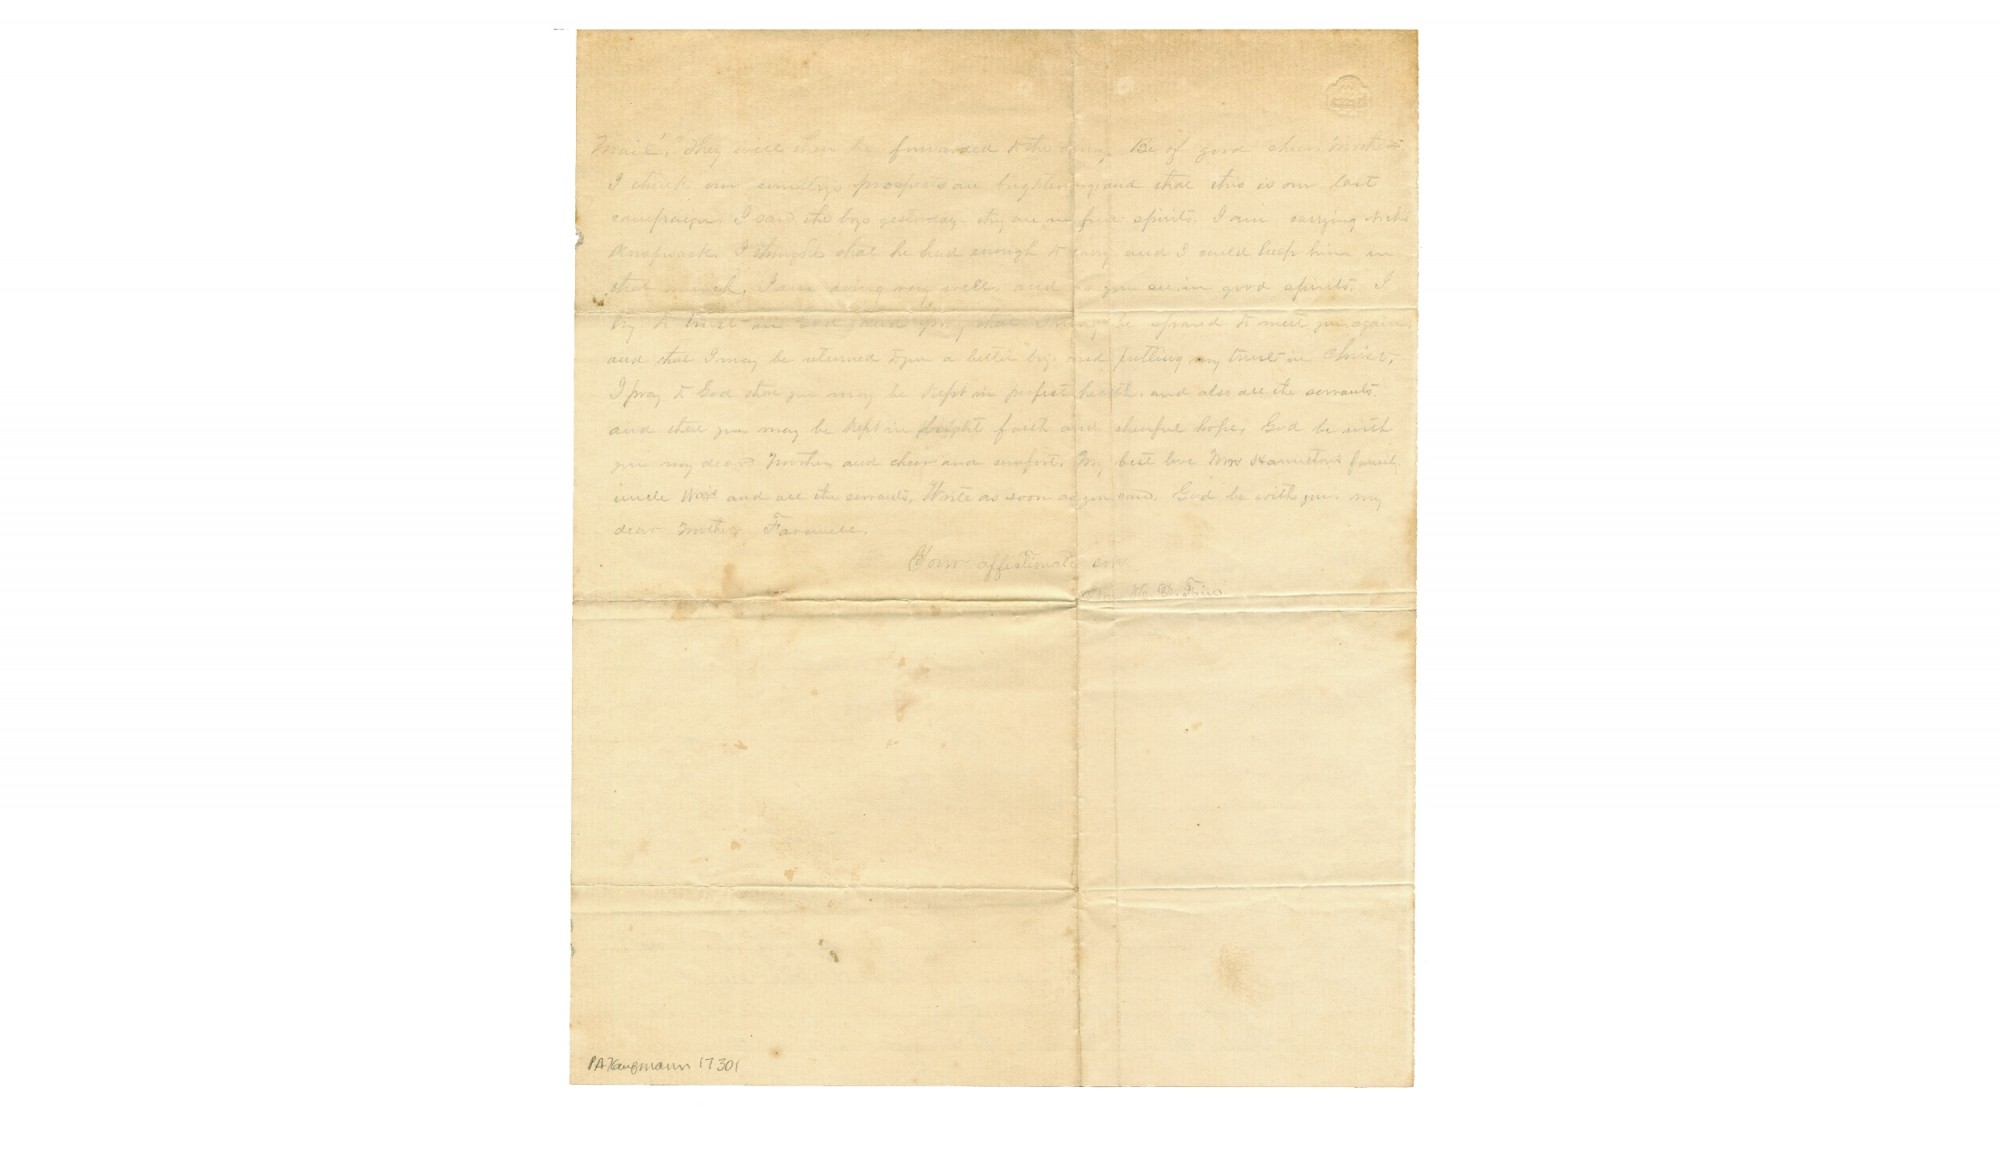 Mail". They will then be forwarded to the army. Be of good cheer Mother
I think our country's prospects are brightening and that this is our last
campaign. I saw the boys yesterday they are in fine spirits. I am carrying
Knapsack. I thought that he had enough to carry and I could help him in
that much. I am doing very well, and as you see, in good spirits. I
try to trust in God and to pray that I may be spared to meet you again
and that I may be returned to you a better boy and putting my trust in Christ.
I pray to God that you may be kept in perfect health, and also all the servants
and that you may be kept in bright faith and cheerful hope. God be with
you my dear Mother and cheer and comfort. My best love Mrs Hamilton's family
uncle and all the servants. Write as soon as you can. God be with you my
dear Mother Farewell.
Your affectionate son
PAKaufmann 17301